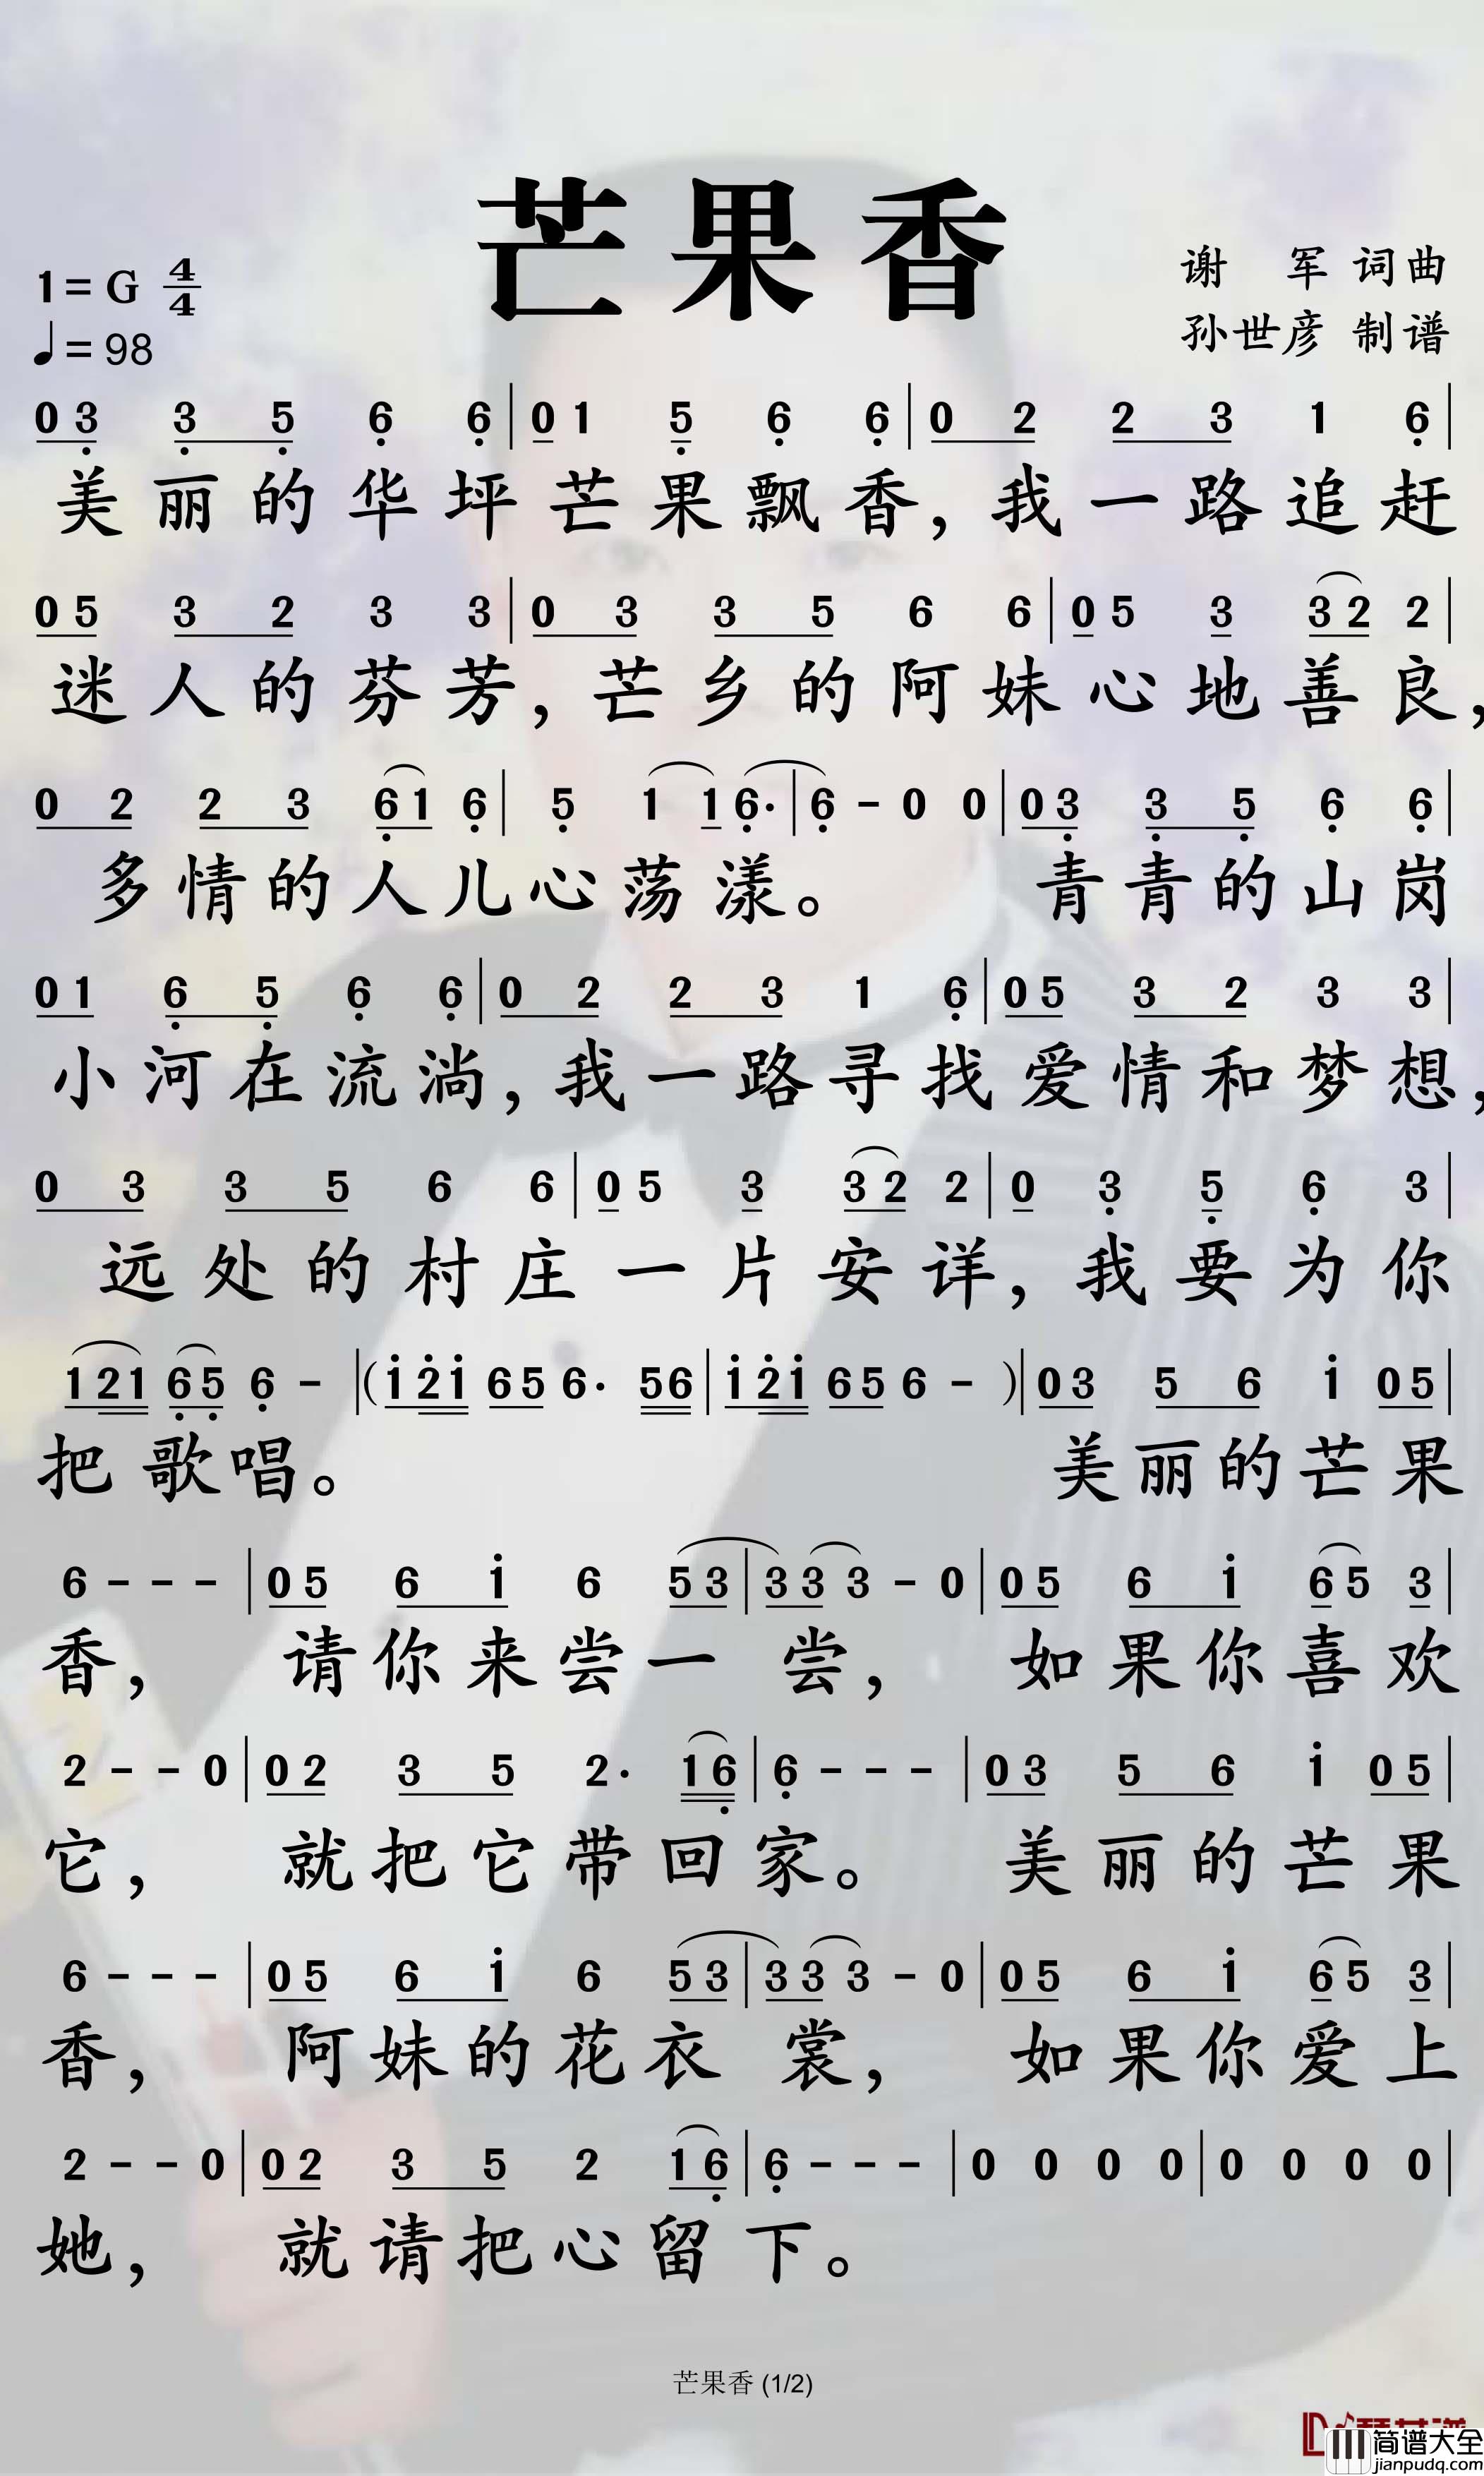 芒果香
1=G 4/4
♩=98
谢 军 词曲
孙世彦 制谱
0 3 3 5 6 6 | 0 1 5 6 6 | 0 2 2 3 1 6 |
美丽的华坪芒果飘香，我一路追赶
0 5 3 2 3 3 | 0 3 3 5 6 6 | 0 5 3 3 2 2 |
迷人的芬芳，芒乡的阿妹心地善良，
0 2 2 3 6 1 6 | 5 1 1 6· | 6 - 0 0 | 0 3 3 5 6 6 |
多情的人儿心荡漾。 青青的山岗
0 1 6 5 6 6 | 0 2 2 3 1 6 | 0 5 3 2 3 3 |
小河在流淌，我一路寻找爱情和梦想，
0 3 3 5 6 6 | 0 5 3 3 2 2 | 0 3 5 6 3 |
远处的村庄一片安详，我要为你
1 2 1 6 5 6 - | (1 2 1 6 5 6· 5 6 | 1 2 1 6 5 6 - ) | 0 3 5 6 1 0 5 |
把歌唱。 美丽的芒果
6 - - - | 0 5 6 1 6 5 3 | 3 3 3 - 0 | 0 5 6 1 6 5 3 |
香， 请你来尝一尝， 如果你喜欢
2 - - 0 | 0 2 3 5 2· 1 6 | 6 - - - | 0 3 5 6 1 0 5 |
它， 就把它带回家。 美丽的芒果
6 - - - | 0 5 6 1 6 5 3 | 3 3 3 - 0 | 0 5 6 1 6 5 3 |
香， 阿妹的花衣裳， 如果你爱上
2 - - 0 | 0 2 3 5 2 1 6 | 6 - - - | 0 0 0 0 | 0 0 0 0 |
她， 就请把心留下。
芒果香 (1/2)
简谱大全
jianpudq.com